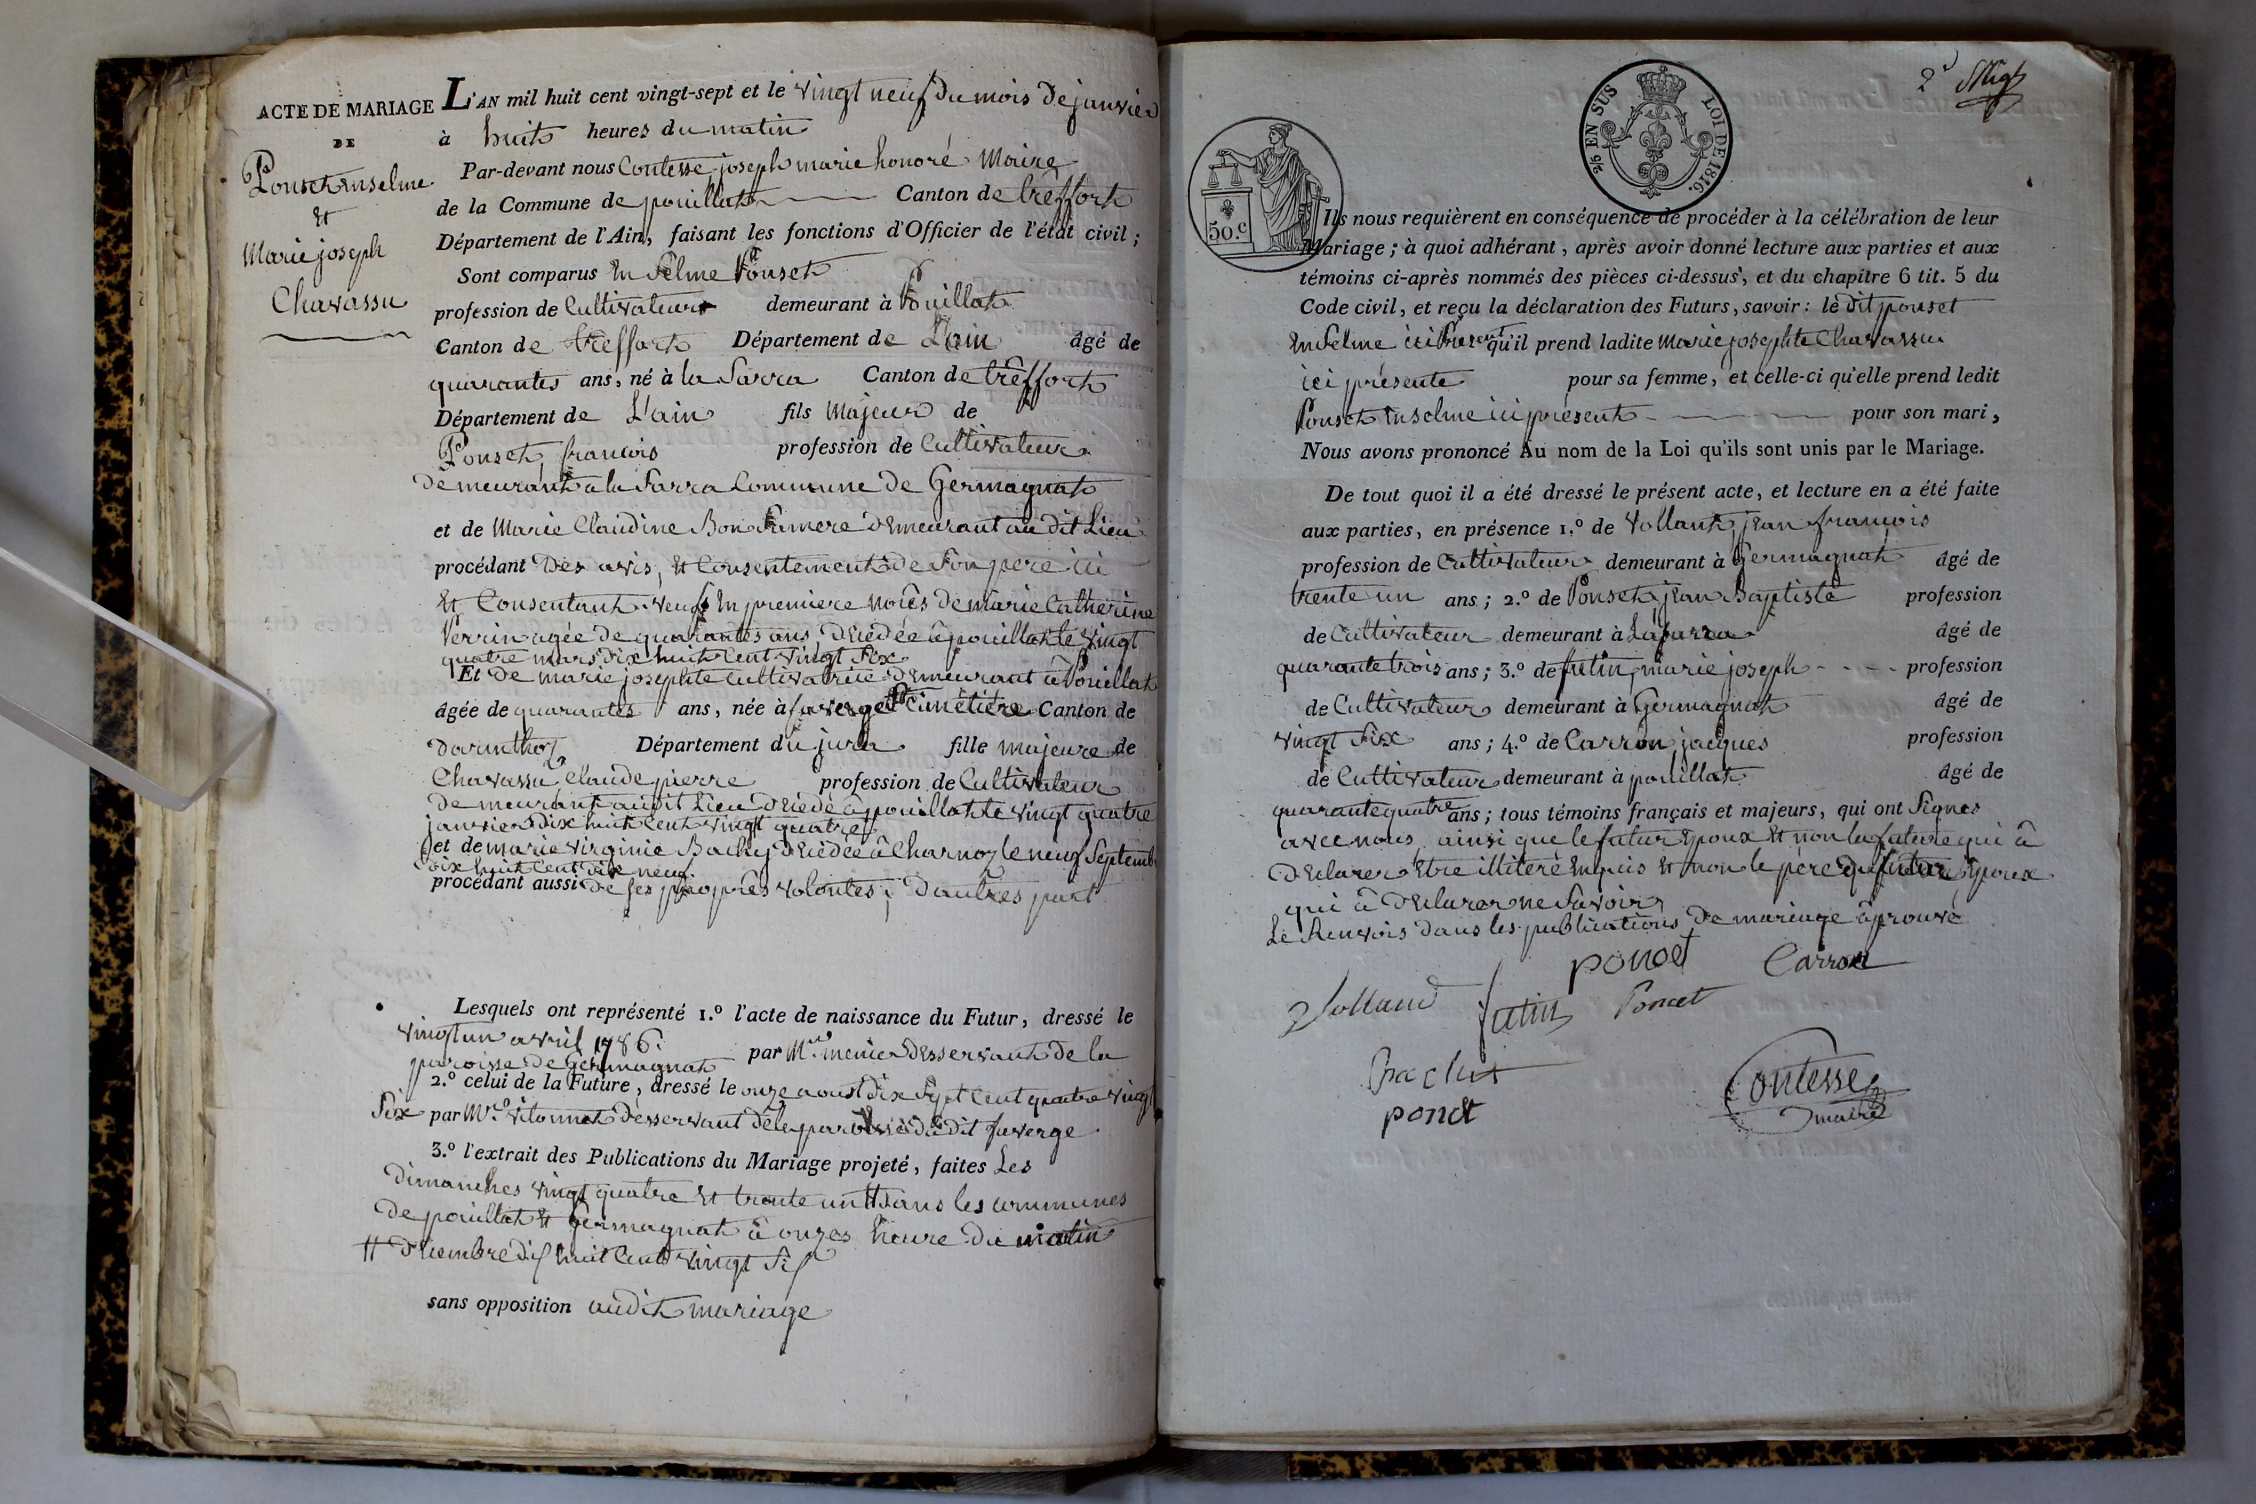 ACTE DE MARIAGE
DE
Ponset enselme
Et
Marie joseph
Chavassu
L'AN mil huit cent vingt-sept et le vingt neuf du mois de janvier
à huit heures du matin
Par-devant nous Contesse joseph marie honoré Maire
de la Commune de pouillat Canton de trêffort
Département de l'Ain, faisant les fonctions d'Officier de l'état civil;
Sont comparus Enselme Ponset
profession de Cultivateur demeurant à Pouillat
Canton de trêffort Département de L'ain âgé de
quarantes ans, né à la Sarra Canton de trêffort
Département de L'ain fils Majeur de
Ponset, francois profession de Cultivateur
demeurant a la Sarra Commune de Germagnat
et de Marie Claudine Bon Sa mere demeurant au dit Lieu
procédant des avis, et Consentement de Son pere ici
Et Consentant veuf En premiere noces de marie Catherine
Perrin agée de quarantes ans décédée à pouillat le vingt
quatre mars dix huit Cent vingt Six
Et de marie josephte cultivatrice demeurant à Pouillat
âgée de quarantes ans, née à faverge St Cimêtiére Canton de
darinthoz Département du jura fille majeure de
Chavassu, Claude pierre profession de Cultivateur
demeurant audit Lieu décédé à pouillat le vingt quatre
janvier dix huit Cent vingt quatre
et de marie virginie Bachy décédée à Charnoz le neuf Septemb
dix huit Cent dix neuf
procédant aussi de ses propres volontes; d'autres part
Lesquels ont représenté 1.º l'acte de naissance du Futur, dressé le
vingt un avril 1786. par Mr. menier desservant de la
paroisse de Germagnat
2.º celui de la Future, dressé le onze aoust dix Sept Cent quatre vingt
Six par Mr. vitonnet desservant de la paroisse du dit faverge
3.º l'extrait des Publications du Mariage projeté, faites Les
dimanches vingt quatre et trente un # dans les communes
de pouillat et Germagnat à onzes heure du matin
# décembre dix huit Cent vingt Six
sans opposition audit mariage
2e
50.c
2/6 EN SUS LOI DE 1816.
Ils nous requièrent en conséquence de procéder à la célébration de leur
Mariage; à quoi adhérant, après avoir donné lecture aux parties et aux
témoins ci-après nommés des pièces ci-dessus, et du chapitre 6 tit. 5 du
Code civil, et reçu la déclaration des Futurs, savoir: le dit ponset
Enselme ici Present qu'il prend ladite Marie josephte Chavassu
ici présente pour sa femme, et celle-ci qu'elle prend ledit
Ponset enselme ici présent pour son mari,
Nous avons prononcé Au nom de la Loi qu'ils sont unis par le Mariage.
De tout quoi il a été dressé le présent acte, et lecture en a été faite
aux parties, en présence 1.º de Vollant, jean francois
profession de Cultivateur demeurant à Germagnat âgé de
trente un ans; 2.º de Ponset, jean Baptiste profession
de Cultivateur demeurant à Lasarra âgé de
quarante trois ans; 3.º de futin, marie joseph profession
de Cultivateur demeurant à Germagnat âgé de
vingt Six ans; 4.º de Carron jacques profession
de Cultivateur demeurant à pouillat âgé de
quarante quatre ans; tous témoins français et majeurs, qui ont Signes
avec nous ainsi que le futur Epoux Et non la future qui à
déclarer Etre illiteré Et non le père du futur Epoux
qui à déclarer ne Savoir
Le Renvois dans les publications de mariage àprouvé
poncet Carron
Volland futin Poncet
poncet
Contesse
maire